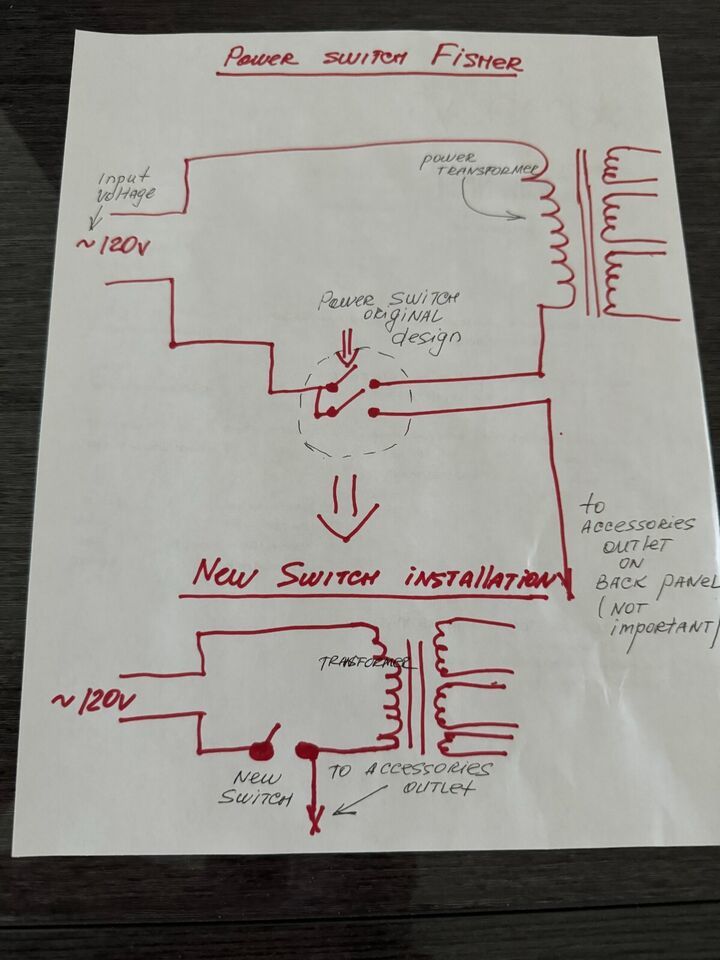 Power switch Fisher
input
voltage
~120v
power
transformer
Power switch
original
design
to
accessories
outlet
on
back panel
(not
important)
New Switch installation
~120v
transformer
New
Switch
to accessories
outlet